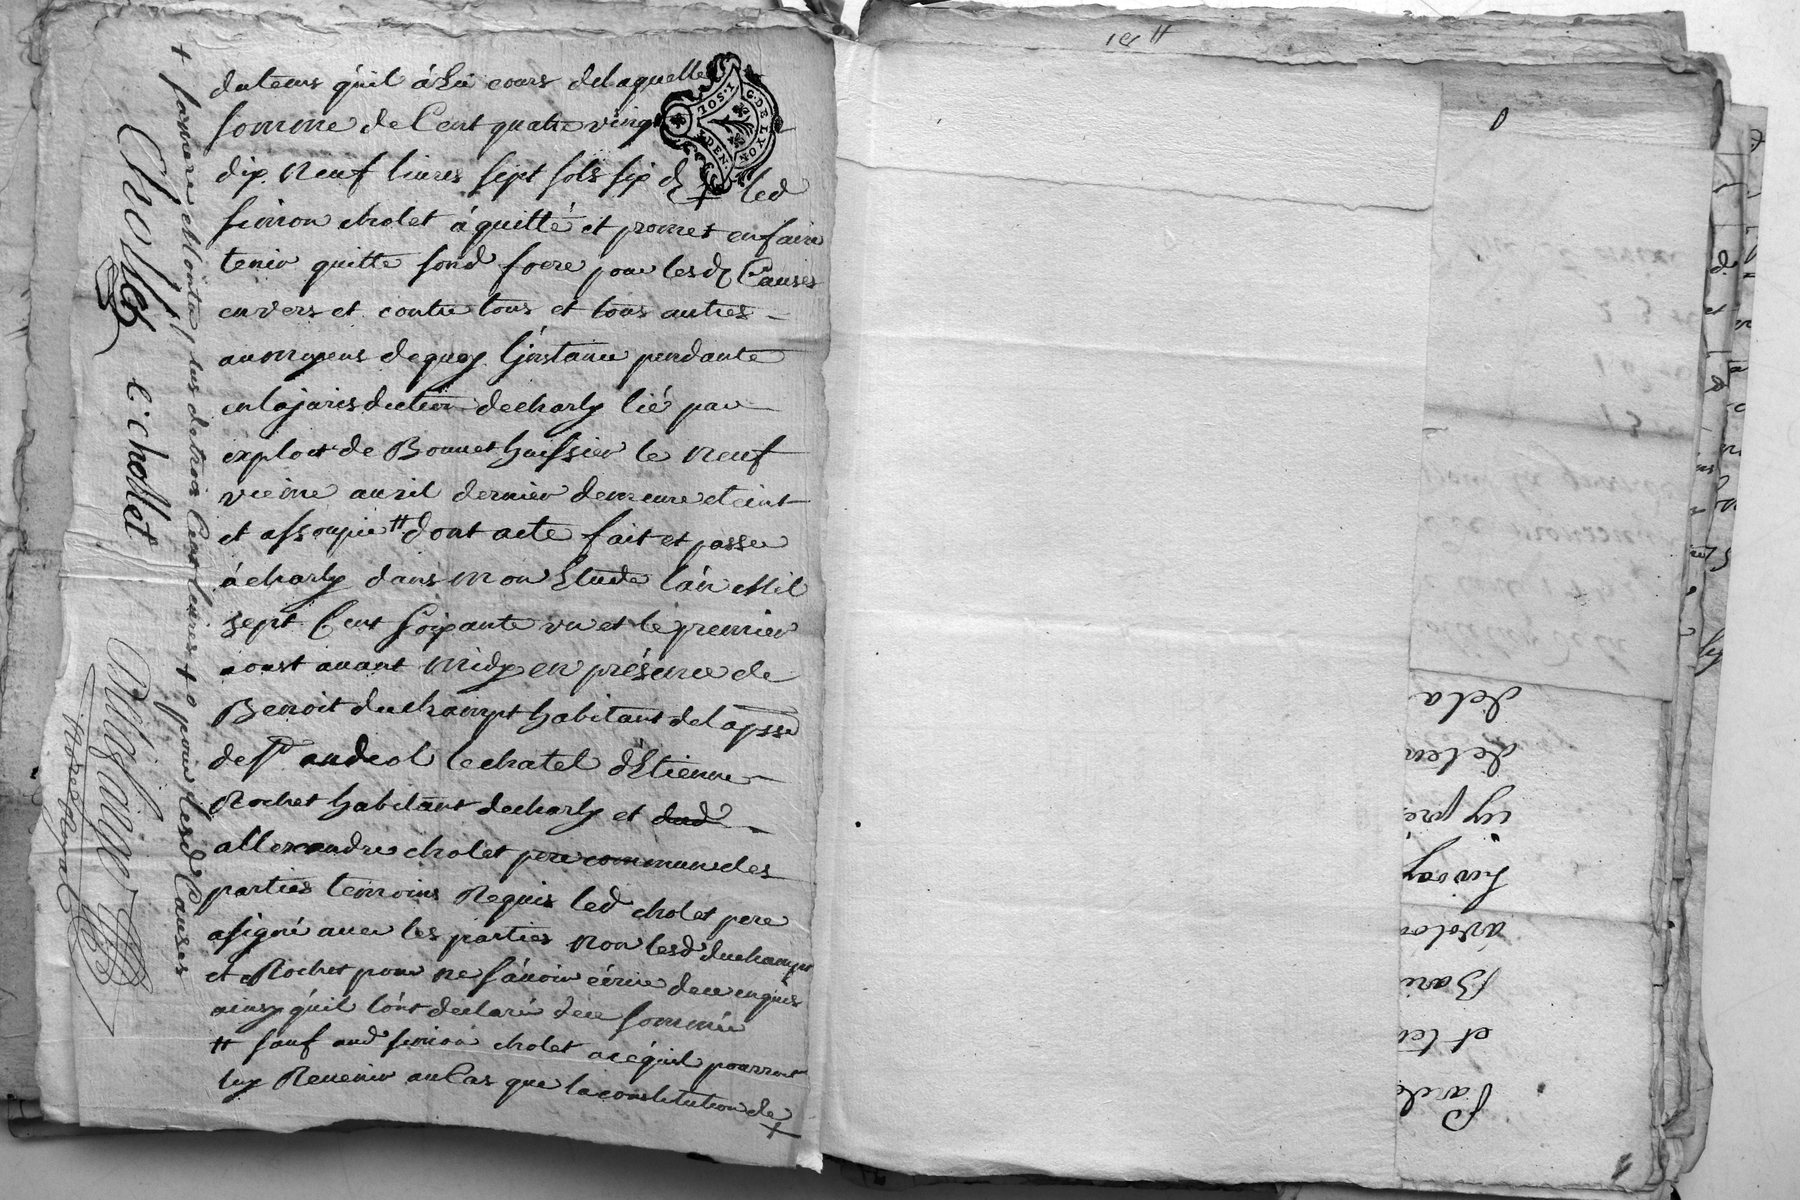 dateurs qu'il à Lui cours delaquelle
somme de Cent quatre vingt
dix Neuf livres sept sols six d + led
simon cholet á quitté et promet en faire
tenir quitte led
pour lesd Causes
envers et contre tous et tous autres
au moyens dequoy L'instance pendante
en la jurisdiction decharly lié par
exploit de Bonnet huissier le Neuf
vieme avril dernier demeure eteint
et assoupie # dont acte fait et passé
á charly dans mon Etude l'an Mil
sept Cent soixante un et le premier
aoust avant midy en présence de
Benoit duchampt habitant de la psse
de st andeol lechatel d'Etienne
Rochet habitant decharly et
allexandre cholet pere commun des
parties temoins Requis led cholet pere
a signé avec les parties Non lesd duchampt
et Rochet pour ne sávoir écrire de ce enquis
ainsy qu'il l'ont declaré de ce sommée
# sauf aud simon cholet a ce qu'il pourroit
luy Revenir au Cas que la constitution de
+
+ somere Montat plus de trois Cent livres + pour lesd Causes
Chollet
C: chollet
Delaslaige
Nore Royal
1. SOL
G. DE LYON
DEN.
dela
et
Bari